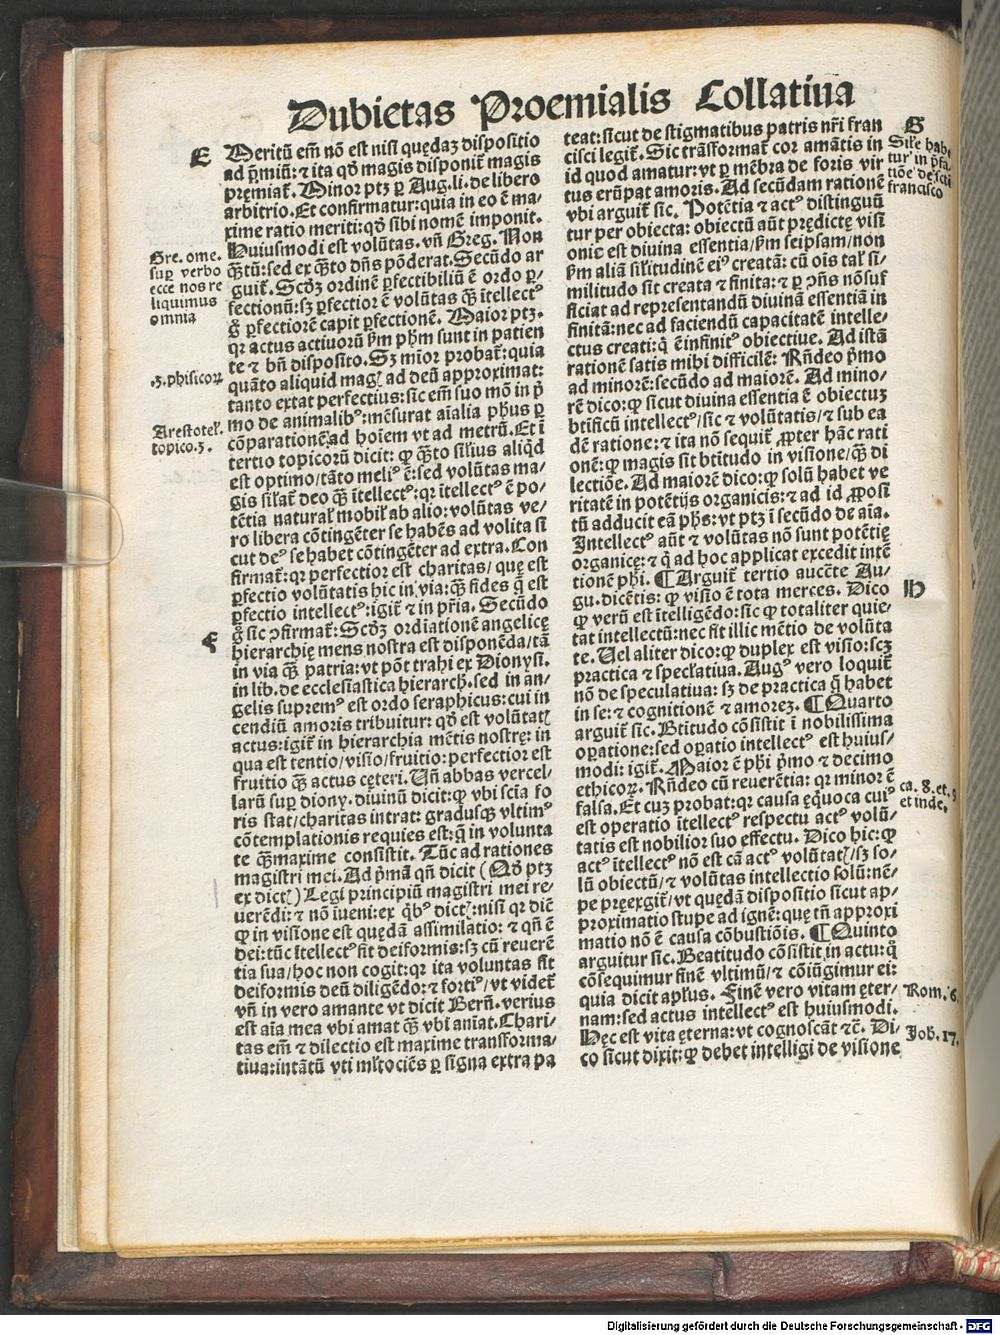 Dubietas Proemialis Collatiua
E
Meritū em̄ nō est nisi quędaȝ dispositio
ad p̄miū: ⁊ ita qd̄ magis disponit̄ magis
pręmiat̄. Minor ptȝ ꝑ Aug. li. de libero
arbitrio. Et confirmatur: quia in eo ē ma-
xime ratio meriti: qd̄ sibi nomē imponit.
Huiusmodi est volūtas. vn̄ Greg. Non
qͣ̄tū: sed ex qͣ̄to dn̄s pōderat. Secūdo ar
guit̄. Scd̓ȝ ordinē ꝑfectibiliū ē ordo ꝑ-
fectionū: sȝ ꝑfectior ē volūtas qͣ̄ ītellectꝰ
g̊ ꝑfectiorē capit ꝑfectionē. Maior ptȝ.
qꝛ actus actiuorū ẜm ph̄m sunt in patien
te ⁊ bn̄ disposito. Sȝ mior probat̄: quia
quāto aliquid magꝭ ad deū approximat:
tanto extat perfectius: sic em̄ suo mō in p̄
mo de animalibꝰ: mēsurat aīalia ph̄us ꝑ
cōparationē ad hoīem vt ad metrū. Et ī
tertio topicorū dicit: ꝙ qͣ̄to siłius aliqd̄
est optimo / tāto meliꝰ ē: sed volūtas ma-
gis siłat̄ deo qͣ̄ ītellectꝰ: qꝛ ītellectꝰ ē po-
tētia naturał mobił ab alio: volūtas ve-
ro libera cōtingēter se habēs ad volita si
cut deꝰ se habet cōtingēter ad extra. Con
firmat̄: qꝛ perfectior est charitas / quę est
ꝑfectio volūtatis hic in via: qͣ̄ fides q̄ est
ꝑfectio intellectꝰ: igit̄ ⁊ in pr̄ia. Secūdo
g̊ sic ↄfirmat̄: Scd̓ȝ ordiationē angelicę
hierarchię mens nostra est disponēda / tā
in via qͣ̄ patria: vt pōt trahi ex Dionysi.
in lib. de ecclesiastica hierarch. sed in an-
gelis supremꝰ est ordo seraphicus: cui in
cendiū amoris tribuitur: qd̄ est volūtatꝭ
actus: igit̄ in hierarchia mētis nostrę: in
qua est tentio / visio / fruitio: perfectior est
fruitio qͣ̄ actus cęteri. Un̄ abbas vercel-
larū suꝑ diony. diuinū dicit: ꝙ vbi scīa fo
ris stat / charitas intrat: gradusqꝫ vltimꝰ
cōtemplationis requies est: q̄ in volunta
te qͣ̄maxime consistit. Tūc ad rationes
magistri mei. Ad p̄mā qn̄ dicit (Qd̄ ptȝ
ex dictꝭ) Legi principiū magistri mei re-
uerēdi: ⁊ nō iueni: ex qͥbꝰ dictꝭ: nisi qꝛ dic̄
ꝙ in visione est quędā assimilatio: ⁊ qn̄ ē
dei: tūc ītellectꝰ fit deiformis: sȝ cū reuerē
tia sua / hoc non cogit: qꝛ ita voluntas fit
deiformis deū diligēdo: ⁊ fortiꝰ / vt videt̄
vn̄ in vero amante vt dicit Bern̄. verius
est aīa mea vbi amat qͣ̄ vbi aniat. Chari-
tas em̄ ⁊ dilectio est maxime transforma-
tiua: intātū vti młtociēs ꝑ signa extra pa
Gre. ome.
suꝑ verbo
ecce nos re
liquimus
omnia
.3. phisicoꝝ
Arestoteł.
topico. 3.
F
teat: sicut de stigmatibus patris nr̄i fran
cisci legit̄. Sic trāsformat̄ cor amātis in
id quod amatur: vt ꝑ mēbra de foris vir
tus erūpat amoris. Ad secūdam rationē
vbi arguit̄ sic. Potētia ⁊ actꝰ distinguū
tur per obiecta: obiectū aūt prędictę visi
onis est diuina essentia / ẜm seipsam / non
ẜm aliā siłitudinē eiꝰ creatā: cū oīs tał si-
militudo sit creata ⁊ finita: ⁊ ꝑ ↄn̄s nō suf
ficiat ad representandū diuinā essentiā in
finitā: nec ad faciendū capacitatē intelle-
ctus creati: q̇ ē infinitꝰ obiectiue. Ad istā
rationē satis mihi difficilē: Rn̄deo p̄mo
ad minorē: secūdo ad maiorē. Ad mino-
rē dico: ꝙ sicut diuina essentia ē obiectuȝ
btīficū intellectꝰ / sic ⁊ volūtatis / ⁊ sub ea
dē ratione: ⁊ ita nō sequit̄ ꝓpter hāc rati
onē: ꝙ magis sit btītudo in visione / qͣ̄ di
lectiōe. Ad maiorē dico: ꝙ solū habet ve
ritatē in potētijs organicis: ⁊ ad id ꝓposi
tū adducit eā ph̄s: vt ptȝ ī secūdo de aīa.
Intellectꝰ aūt ⁊ volūtas nō sunt potētię
organicę: ⁊ q̇ ad hoc applicat excedit intē
tionē ph̄i. ¶ Arguit̄ tertio aucēte Au-
gu. dicētis: ꝙ visio ē tota merces. Dico
ꝙ verū est ītelligēdo: sic ꝙ totaliter quie-
tat intellectū: nec fit illic mētio de volūta
te. Uel aliter dico: ꝙ duplex est visio: scȝ
practica ⁊ specłatiua. Augꝰ vero loquit̄
nō de speculatiua: sȝ de practica q̄ habet
in se: ⁊ cognitionē ⁊ amoreȝ. ¶ Quarto
arguit̄ sic. Btītudo cōsistit ī nobilissima
oꝑatione: sed oꝑatio intellectꝰ est huius-
modi: igit̄. Maior ē ph̄i p̄mo ⁊ decimo
ethicoꝝ. Rn̄deo cū reuerētia: qꝛ minor ē
falsa. Et cuȝ probat: qꝛ causa ęquoca cuiꝰ
est operatio ītellectꝰ respectu actꝰ volū-
tatis est nobilior suo effectu. Dico hic: ꝙ
actꝰ ītellectꝰ nō est cā actꝰ volūtatꝭ / sȝ so-
lū obiectū / ⁊ volūtas intellectio solū: nē-
pe pręexgit̄ / vt quędā dispositio sicut ap-
proximatio stupe ad ignē: quę tn̄ approxi
matio nō ē causa cōbustiōis. ¶ Quinto
arguitur sic. Beatitudo cōsistit in actu: q̊
cōsequimur finē vltimū / ⁊ cōiūgimur ei:
quia dicit apłus. Finē vero vitam ęter-
nam: sed actus intellectꝰ est huiusmodi.
Hęc est vita ęterna: vt cognoscāt ⁊c̄. Di-
co sicut dixit: ꝙ debet intelligi de visione
G
Siłe habe
tur in p̄fa
tiōe de scī
francisco
H
ca. 8. et. 9
et inde.
Rom. 6.
Joh. 17.
Digitalisierung gefördert durch die Deutsche Forschungsgemeinschaft - DFG